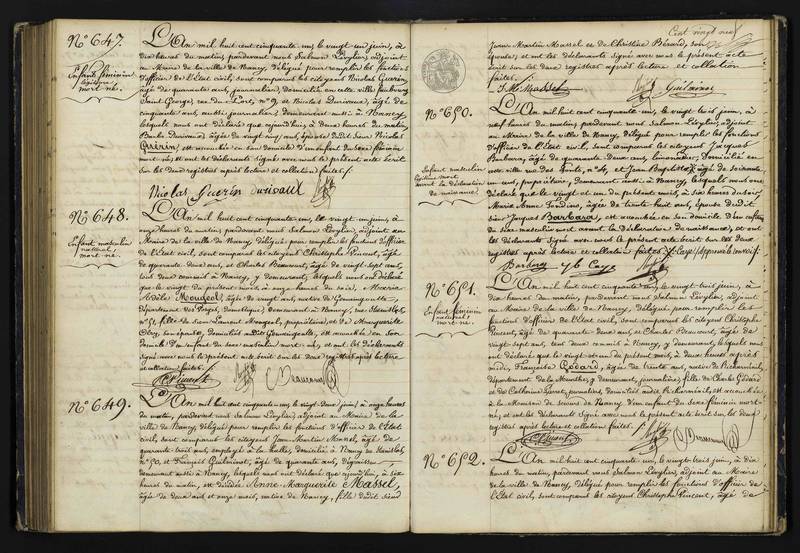 N° 647.
Enfant féminin
légitime
mort-né.
L'An mil huit cent cinquante-un, le vingt-un juin, à
dix heures du matin, pardevant nous Salmon Lévylier, adjoint
au Maire de la ville de Nancy, délégué pour remplir les fonctions
d'officier de l'État civil, sont comparus les citoyens Nicolas Guérin,
âgé de quarante ans, journalier, domicilié en cette ville, faubourg
Saint Georges, rue du Port, n° 9, et Nicolas Durivaux, âgé de
cinquante ans, aussi journalier, demeurant aussi à Nancy,
lesquels nous ont déclaré que aujourd'hui, à deux heures du matin,
Barbe Durivaux, âgée de vingt cinq ans, épouse dudit Sieur Nicolas
Guérin, est accouchée en son domicile d'un enfant du sexe féminin
mort-né; et ont les déclarants signé avec nous le présent acte écrit
sur les deux registres après lecture et collation faites.
Nicolas Guerin durivaux
N° 648.
Enfant masculin
naturel
mort-né.
L'An mil huit cent cinquante-un, le vingt-un juin, à
onze heures du matin, pardevant nous Salmon Lévylier, adjoint au
Maire de la ville de Nancy, délégué pour remplir les fonctions d'officier
de l'État civil, sont comparus les citoyens Christophe Pincent, âgé
de quarante deux ans, et Charles Beaucourt, âgé de vingt-sept ans,
tous deux commis à Nancy, y demeurant, lesquels nous ont déclaré
que le vingt du présent mois, à onze heures du soir, Maria
Adèle Mougeot, âgée de vingt ans, native de
département des Vosges, domestique, demeurant à Nancy, rue
n° 51, fille de Jean Laurent Mougeot, propriétaire, et de Marguerite
son épouse, domiciliés audit est accouchée en son
domicile d'un enfant du sexe masculin mort-né, et ont les déclarants
signé avec nous le présent acte écrit sur les deux registres après lecture
et collation faites.
C Pincent Beaucourt
N° 649.
L'An mil huit cent cinquante-un, le vingt-deux juin, à onze heures
du matin, pardevant nous Salmon Lévylier, adjoint au Maire de la
ville de Nancy, délégué pour remplir les fonctions d'officier de l'État
civil, sont comparus les citoyens Jean-Martin Massel, âgé de
quarante-trois ans, employé à la halle, domicilié à Nancy, rue Stanislas
n° 50, et François Guilminot, âgé de quarante ans,
demeurant aussi à Nancy, lesquels nous ont déclaré que aujourd'hui, à six
heures du matin, est décédée Anne-Marguerite Massel,
âgée de deux ans et onze mois, native de Nancy, fille dudit Sieur
Cent vingt neuf
Jean Martin Massel et de Christine Bérard, son
épouse, et ont les déclarants signé avec nous le présent acte
écrit sur les deux registres après lecture et collation
faites.
J. M. Massel Guilminot
N° 650.
Enfant masculin
légitime mort
avant la déclaration
de naissance.
L'An mil huit cent cinquante-un, le vingt-trois juin, à
neuf heures du matin, pardevant nous Salmon Lévylier, adjoint
au Maire de la ville de Nancy, délégué pour remplir les fonctions
d'officier de l'État civil, sont comparus les citoyens Jacques
Barbara, âgé de quarante-deux ans, limonadier, domicilié en
cette ville rue des Ponts, n° 4, et Jean Baptiste âgé de soixante
un ans, propriétaire, demeurant aussi à Nancy, lesquels nous ont
déclaré que le vingt et un du présent mois, à six heures du soir
Marie Anne âgée de trente huit ans, épouse dudit
Sieur Jacques Barbara, est accouchée en son domicile d'un enfant
du sexe masculin mort avant la déclaration de naissance; et ont
les déclarants signé avec nous le présent acte écrit sur les deux
registres après lecture et collation faites.
Barbara
N° 651.
Enfant féminin
naturel
mort-né.
L'An mil huit cent cinquante-un, le vingt-trois juin, à
dix heures du matin, pardevant nous Salmon Lévylier, adjoint
au Maire de la ville de Nancy, délégué pour remplir les
fonctions d'officier de l'État civil, sont comparus les citoyens Christophe
Pincent, âgé de quarante deux ans et Charles Beaucourt, âgé de
vingt-sept ans, tous deux commis à Nancy, y demeurant, lesquels nous
ont déclaré que le vingt-deux du présent mois, à deux heures après
midi, Françoise Godard, âgée de trente ans, native de
département de la Meurthe, y demeurant, journalière, fille de Charles Godard
et de Catherine domiciliés audit est accouchée
à la Maison de Secours de Nancy d'un enfant du sexe féminin mort-
né; et ont les déclarants signé avec nous le présent acte écrit sur les deux
registres après lecture et collation faites.
C Pincent C Beaucourt
N° 652.
L'An mil huit cent cinquante-un, le vingt-trois juin, à dix
heures du matin, pardevant nous Salmon Lévylier, adjoint au Maire
de la ville de Nancy, délégué pour remplir les fonctions d'officier de
l'État civil, sont comparus les citoyens Christophe Pincent, âgé de